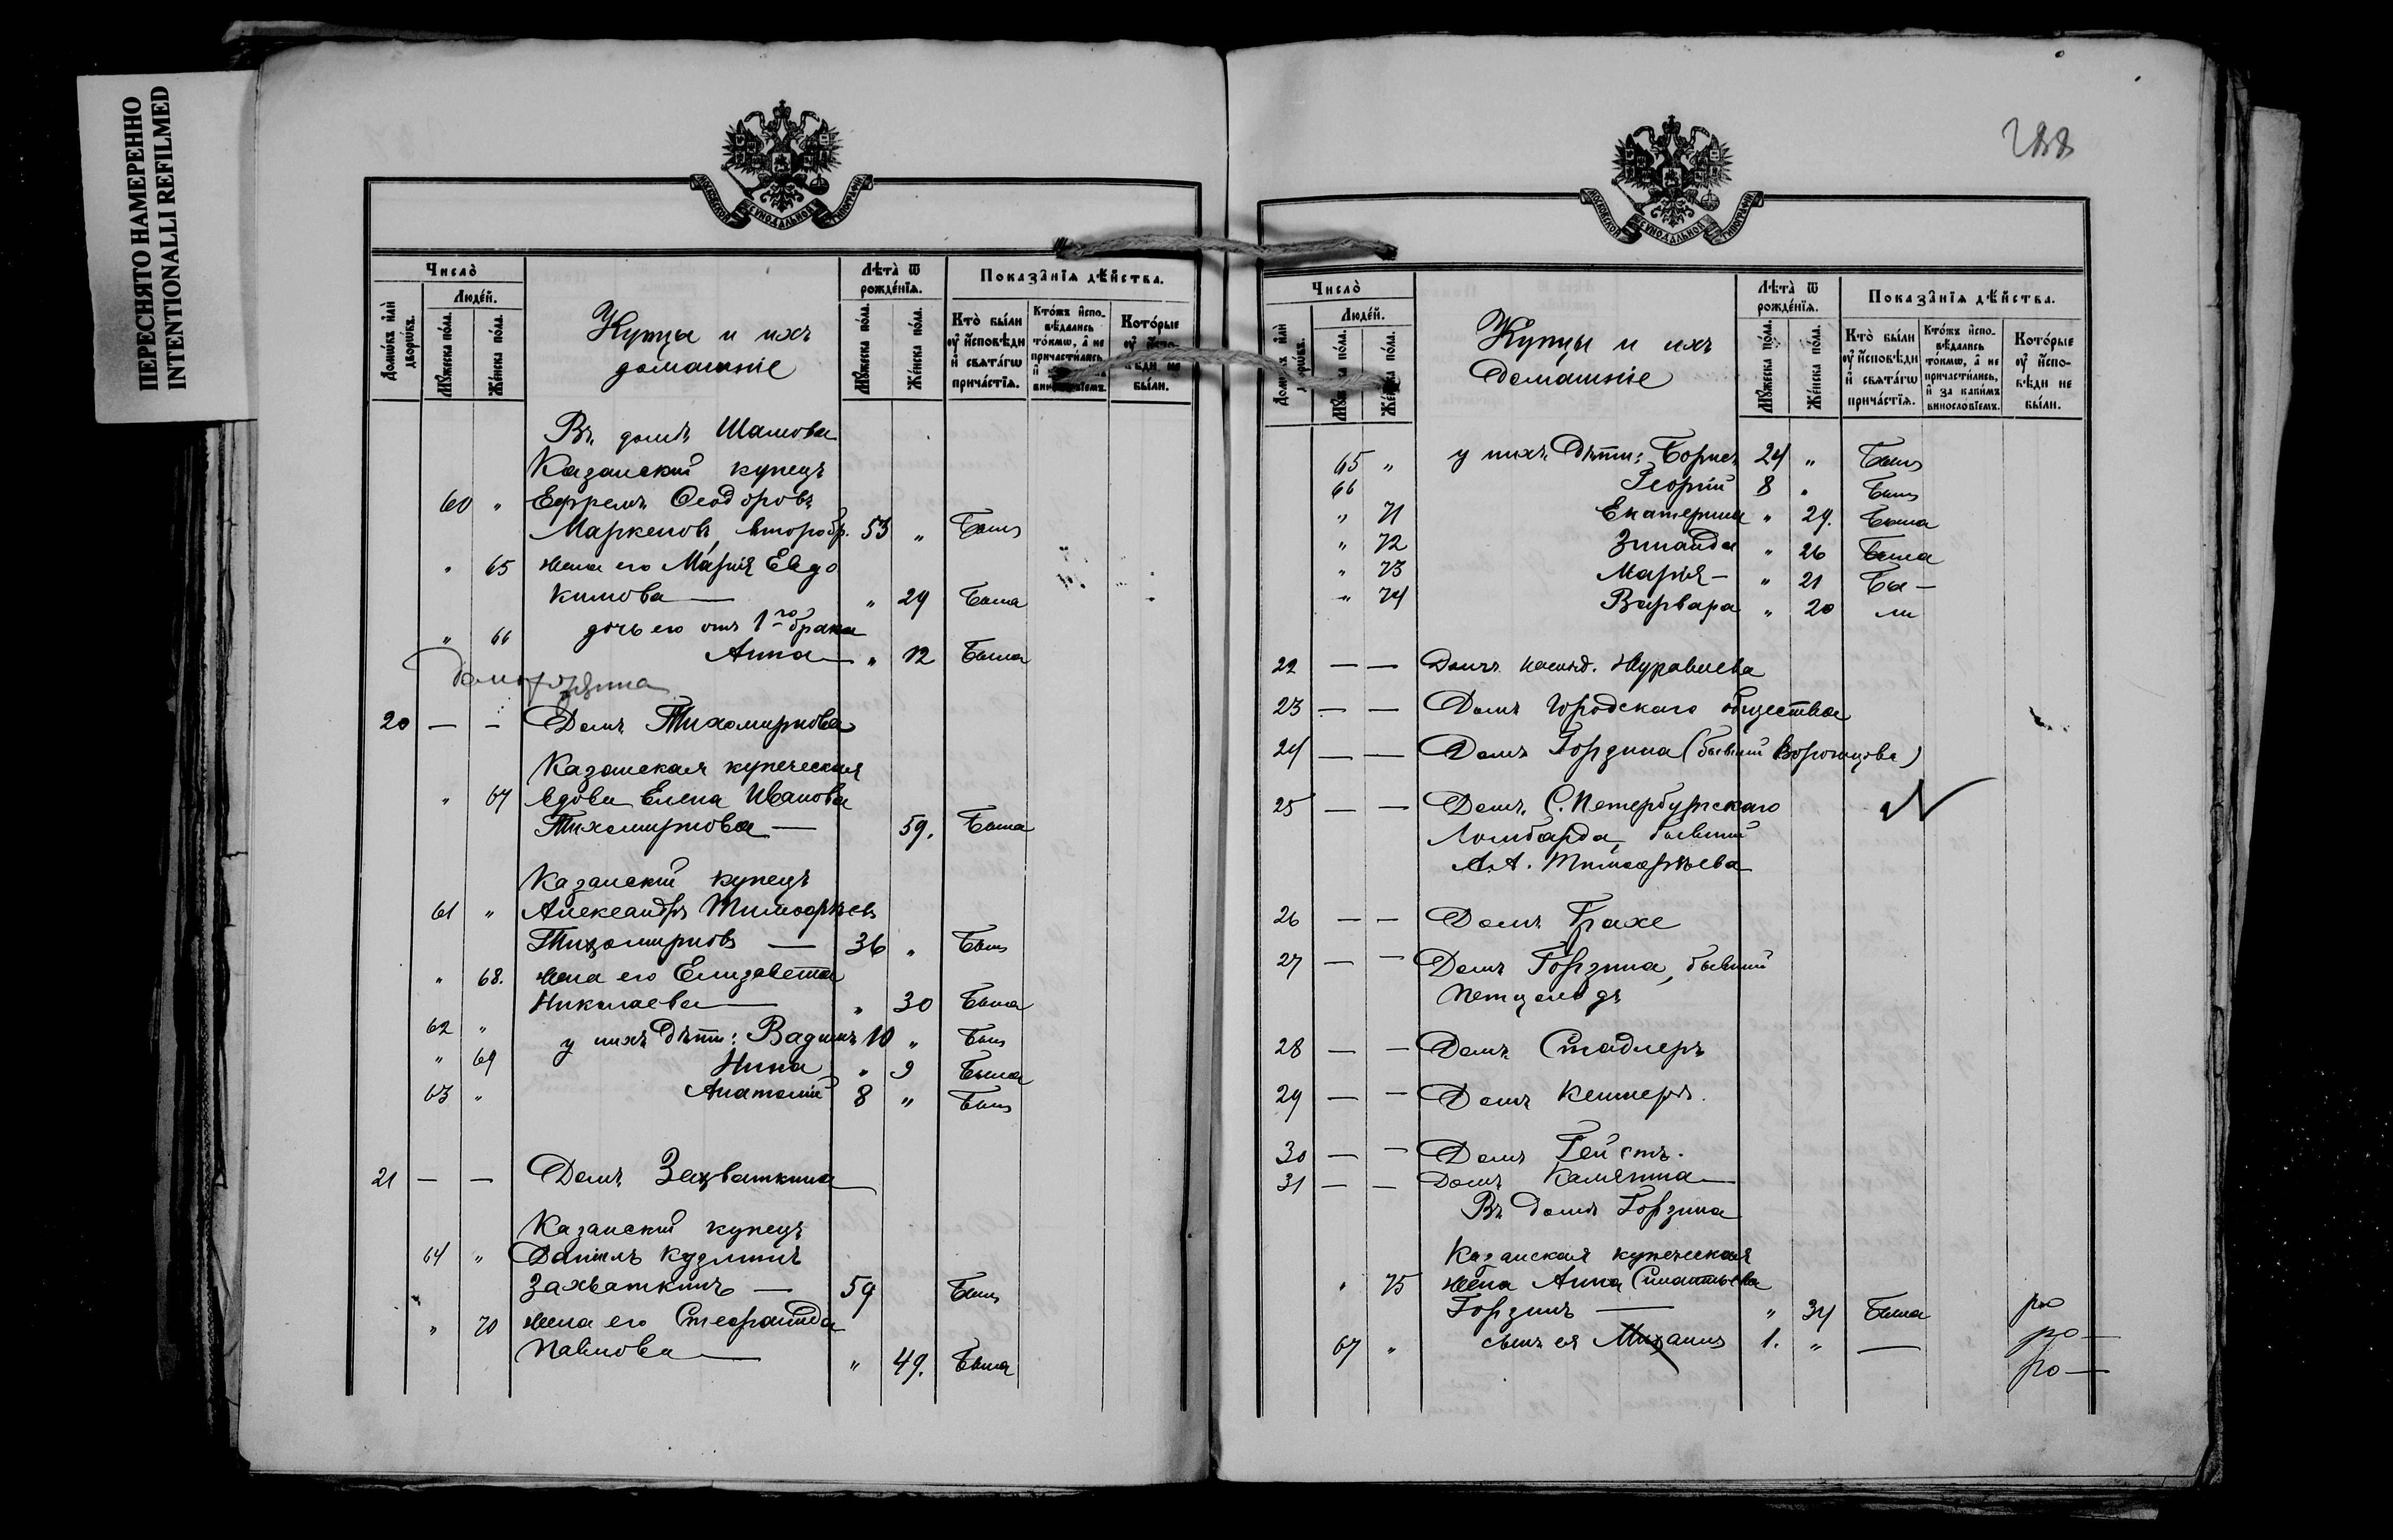 ПЕРЕСНЯТО НАМЕРЕННО
INTENTIONALLI REFILMED
МОСКОВСКОЙ СѴНОДАЛЬНОЙ ТИПОГРАФІИ
Число̀
Лѣта̀ ѿ рожде́нїѧ.
Показа̑нїѧ дѣ́йства.
Домѡ́въ и҆лѝ дворѡ́въ.
Люде́й.
Мꙋ́жеска по́ла.
Же́нска по́ла.
Купцы и ихъ
домашніе
Мꙋ́жеска по́ла.
Же́нска по́ла.
Кто̀ бы́ли ᲂу҆ и҆сповѣ́ди и҆ свѧта́гѡ прича́стїѧ.
Кто́жъ и҆сповѣ́дались то́кмѡ, а҆ не причасти́лись, и҆ винословїемъ.
Кото́рые ᲂу҆ и҆споvѣ́ди не бы́ли.
Въ домѣ Шамова
Казанскій купецъ
60 " Ефремъ Ѳеодоровъ
Маркеловъ, второбр. 53 " Былъ
" 65 жена его Марія Евдо
кимова — " 29 Была
" 66 дочь его отъ 1го брака
Анна — " 12 Была
20 — — Домъ Тихомирнова
Казанская купеческая
" 67 вдова Елена Иванова
Тихомирнова — 59. Была
Казанскій купецъ
61 " Александръ Тимоѳеевъ
Тихомирновъ — 36 " Былъ
" 68. жена его Елизавета
Николаева — " 30 Была
62 " у нихъ дѣти: Вадимъ 10 " Былъ
" 69 Нина " 9 Была
63 " Анатолій 8 " Былъ
21 — — Домъ Захваткина
Казанскій купецъ
64 " Даніилъ Кузминъ
Захваткинъ — 59 Былъ
" 70 жена его Стефанида
Павлова — " 49. Была
288
МОСКОВСКОЙ СѴНОДАЛЬНОЙ ТИПОГРАФІИ
Число̀
Лѣта̀ ѿ рожде́нїѧ.
Показа̑нїѧ дѣ́йства.
Домѡ́въ и҆лѝ дворѡ́въ.
Люде́й.
Мꙋ́жеска по́ла.
Же́нска по́ла.
Купцы и ихъ
Домашніе
Мꙋ́жеска по́ла.
Же́нска по́ла.
Кто̀ бы́ли ᲂу҆ и҆сповѣ́ди и҆ свѧта́гѡ прича́стїѧ.
Кто́жъ и҆сповѣ́дались то́кмѡ, а҆ не причасти́лись, и҆ за каки́мъ винословїемъ.
Кото́рые ᲂу҆ и҆сповѣ́ди не бы́ли.
65 " у нихъ дѣти: Борисъ 24 " Былъ
66 Георгій 8 " Былъ
" 71 Екатерина " 29. Была
" 72 Зинаида " 26 Была
" 73 Марія — " 21 Бы —
" 74 Варвара " 20 ли
22 — — Домъ наслѣд. Журавлева
23 — — Домъ Городскаго общества
24 — — Домъ Горзина (бывшій Воронцова)
25 — — Домъ С. Петербургскаго
Ломбарда, бывшій
А.А. Тимоѳеева
26 — — Домъ Грахе
27 — — Домъ Горзина, бывшій
Петцольдъ
28 — — Домъ Стадлеръ
29 — — Домъ Келлеръ.
30 — — Домъ Гейстъ.
31 — — Домъ Калягина
Въ домѣ Горзина
Казанская купеческая
" 75 жена Анна Игнатьева
Горзинъ — " 34 Была
67 " сынъ ея Михаилъ 1. " —
ро
ро —
ро —